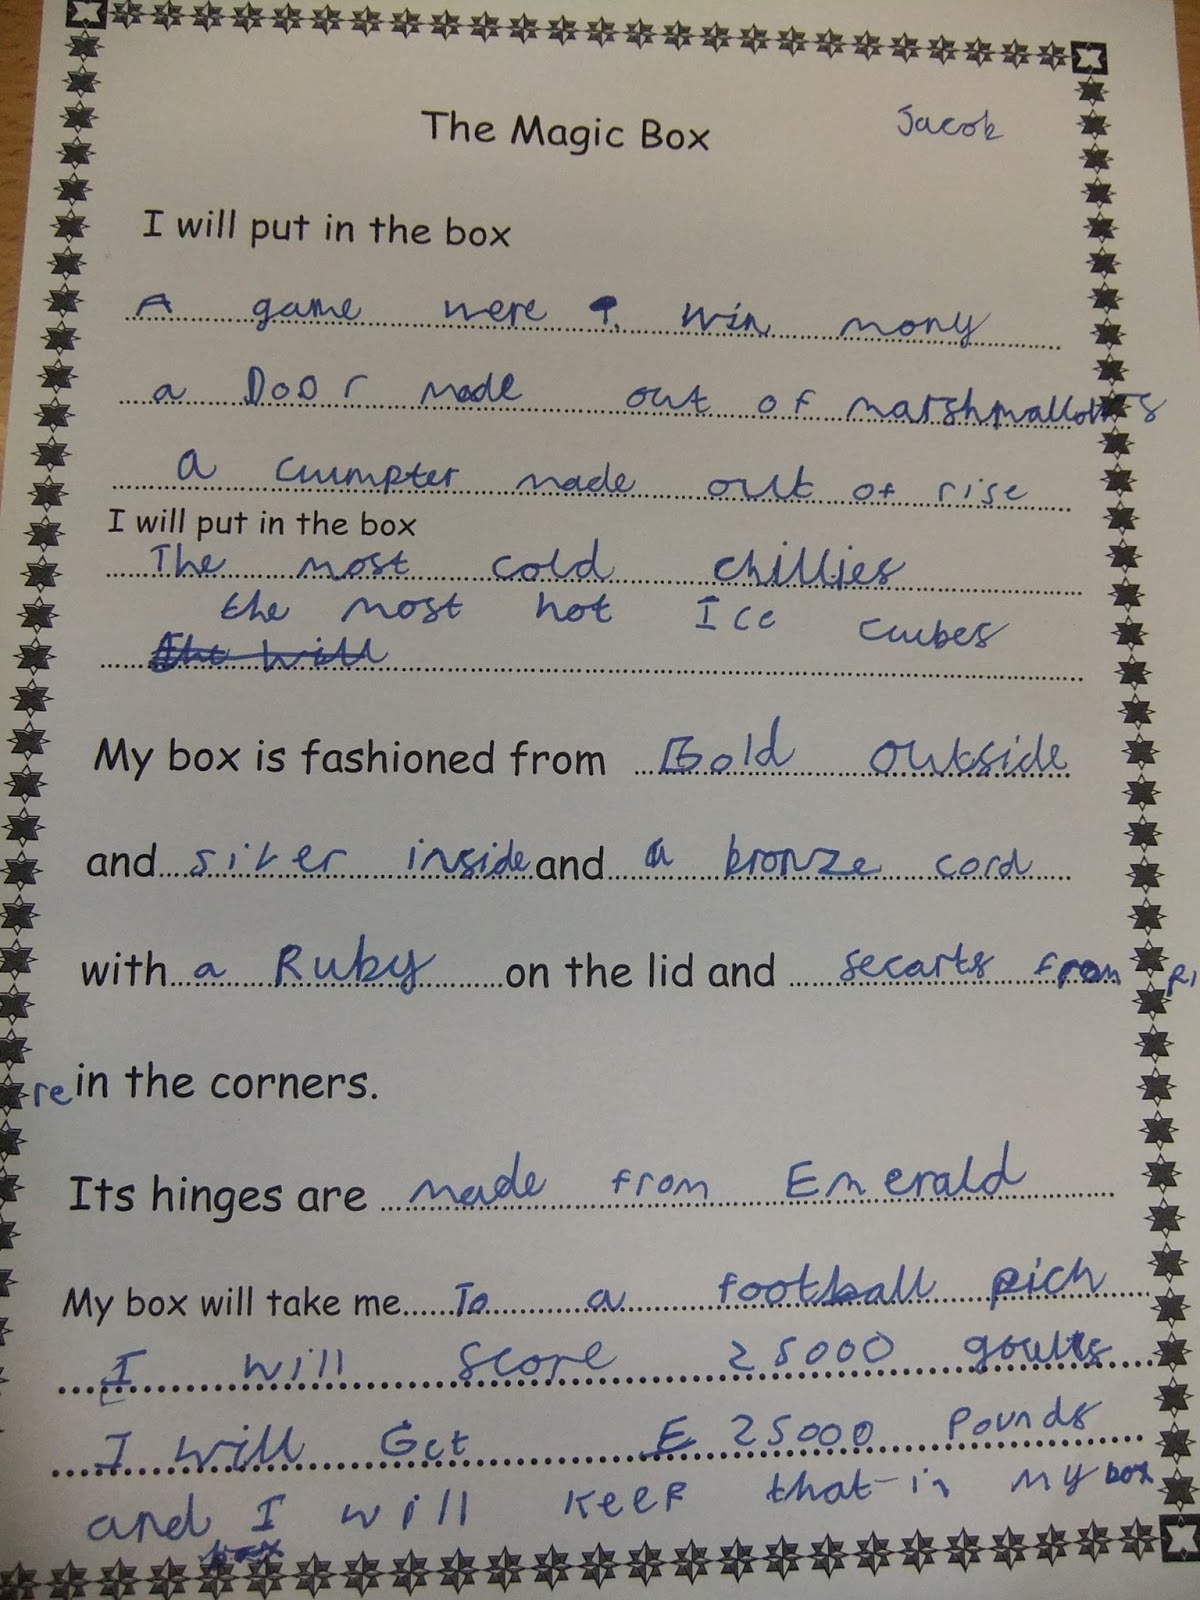 The Magic Box Jacob
I will put in the box
A game were I win mony
a DooR made out of marshmallows
a cuumpter made out of rise
I will put in the box
The most cold chillies
the most hot Ice cuubes
the will
My box is fashioned from Gold outside
and silver inside and a bronze cord
with a Ruby on the lid and secarts from fi
re in the corners.
Its hinges are made from Emerald
My box will take me To a football pich
I will score 25000 gouls
I will Get £ 25000 Pounds
and I will KeeP that in my box
box